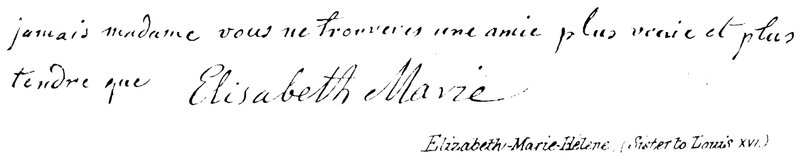 jamais madame vous ne trouveres une amie plus vraie et plus
tendre que Elisabeth Marie
Elizabeth-Marie-Hélène (Sister to Louis XVI.)